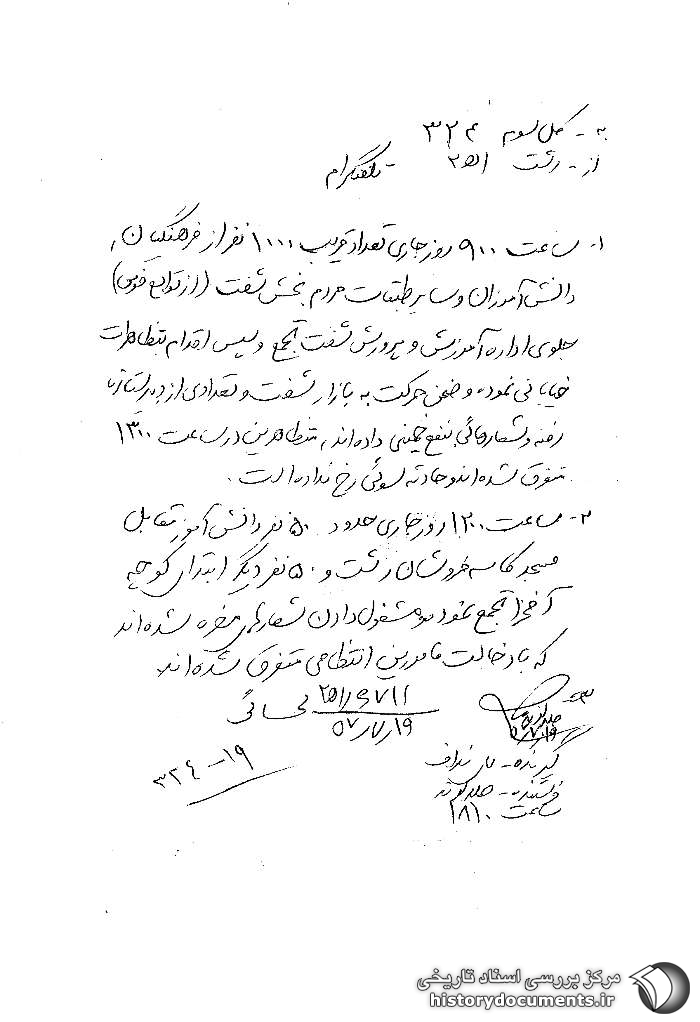 به - کل سوم ۳۲۴
از - رشت ۲ ه ۱ - تلفنگرام
۱- ساعت ۹۰۰ روز جاری تعداد قریب ۱۰۰۰ نفر از فرهنگیان،
دانش آموزان و سایر طبقات مردم بخش شفت (از توابع فومن)
جلوی اداره آموزش و پرورش شفت تجمع و سپس اقدام بتظاهرات
خیابانی نموده و ضمن حرکت به بازار شفت و تعدادی از دبیرستانها
رفته و شعارهائی بنفع خمینی داده اند، متظاهرین در ساعت ۱۳۰۰
متفرق شده اند و حادثه سوئی رخ نداده است.
۲- ساعت ۱۲۰۰ روز جاری حدود ۵۰ نفر دانش آموز مقابل
مسجد کاسه فروشان رشت و ۵۰ نفر دیگر ابتدای کوچه
آفخرا تجمع نموده و مشغول دادن شعارهای مضره شده اند
که با دخالت مامورین انتظامی متفرق شده اند.
۲ ه ۱/۶۷۱۱
۵۷/۷/۱۹
گیرنده -
فرستنده -
ساعت ۱۸۱۰
۳۲۴ - ۱۹
مرکز بررسی اسناد تاریخی
historydocuments.ir